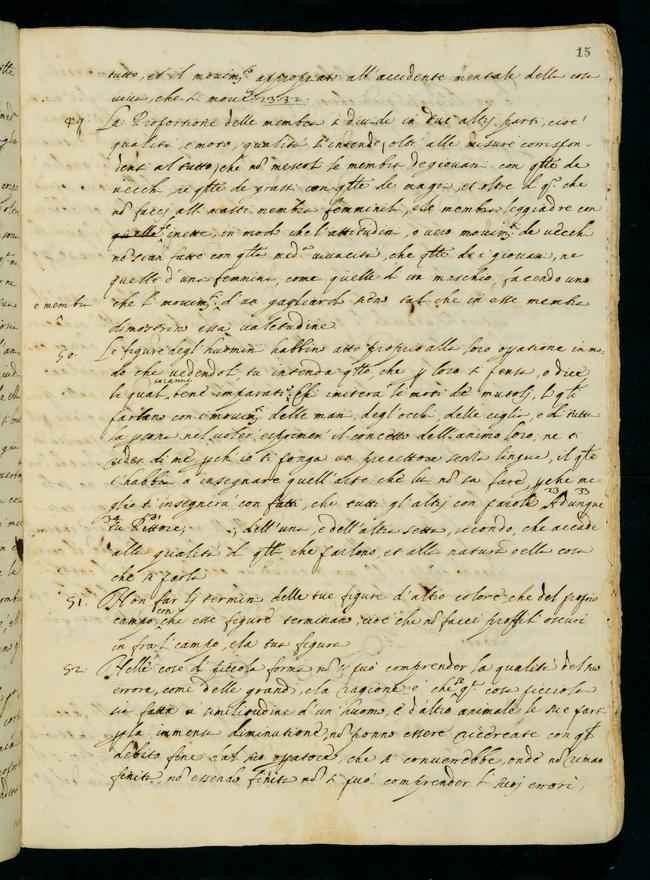 15
tutto, et il movim.to appropriato all'accidente mentale della cosa
viva, che si move. 23.32.
49. La Proportione delle membra si divide in due altre parti, cioè
qualità, e moto, qualità s'intende, oltre alle misure corrispon-
denti al tutto, che nō mescoli le membra de giovani con q.lle de
vecchi, ne q.lle de grassi con q.lle de magri, et oltre di q.o che
nō facci alli maschi membra femminili, e le membra leggiadre con
quelle inette, in modo che l'attitudini, o vero movim.ti de vecchi
nō sian fatte con q.lla med.a vivacità, che q.lle de i giovani, ne
quelle d'una femmina, come quelle di un maschio, facendo
e membra
che li movim.ti d'un gagliardo sieno tali che in esse membra
dimostrino essa valetudine
50. Le figure degl'huomini habbino atto proprio alla loro op.atione in mo-
do che vedendoli tu intenda q.llo, che p loro si pensa, o dice
saranno
li quali bene imparati. Chi imiterà li moti de mutoli, li q.li
parlano con i movim.ti delle mani, degl'occhi, delle ciglia, e di tutta
la p.sona nel voler esprimere il concetto dell'animo loro, ne ti
rider di me, p.chè io ti ponga un precettore senza lingua, il q.le
t'habbia a insegnare quell'arte che lui nō sa fare, p.che me-
glio t'insegnerà con fatti, che tutti gl'altri con parole. 23 33 Adunque
34 tu Pittore, dell'una, e dell'altra setta, secondo, che accade
alla qualità di q.lli che parlono, et alla natura della cosa
che si parla
51. Non far li termini delle tue figure d'altro colore, che del proprio
campo, che esse figure terminano, cioè che nō facci proffili oscuri
infra il campo, e la tua figura
52. Nelle cose di piccola forma nō si può comprender la qualità del suo
errore, come delle grandi, e la ragione è che se q.a cosa picciola
sia fatta a similitudine d'un huomo, o d'altro animale, le sue parti
p la immensa diminutione, nō ponno essere ricercate con q.l
debito fine dal suo op.atore, che si converrebbe, onde nō riman
finita, nō essendo finita nō si può comprender li suoi errori;